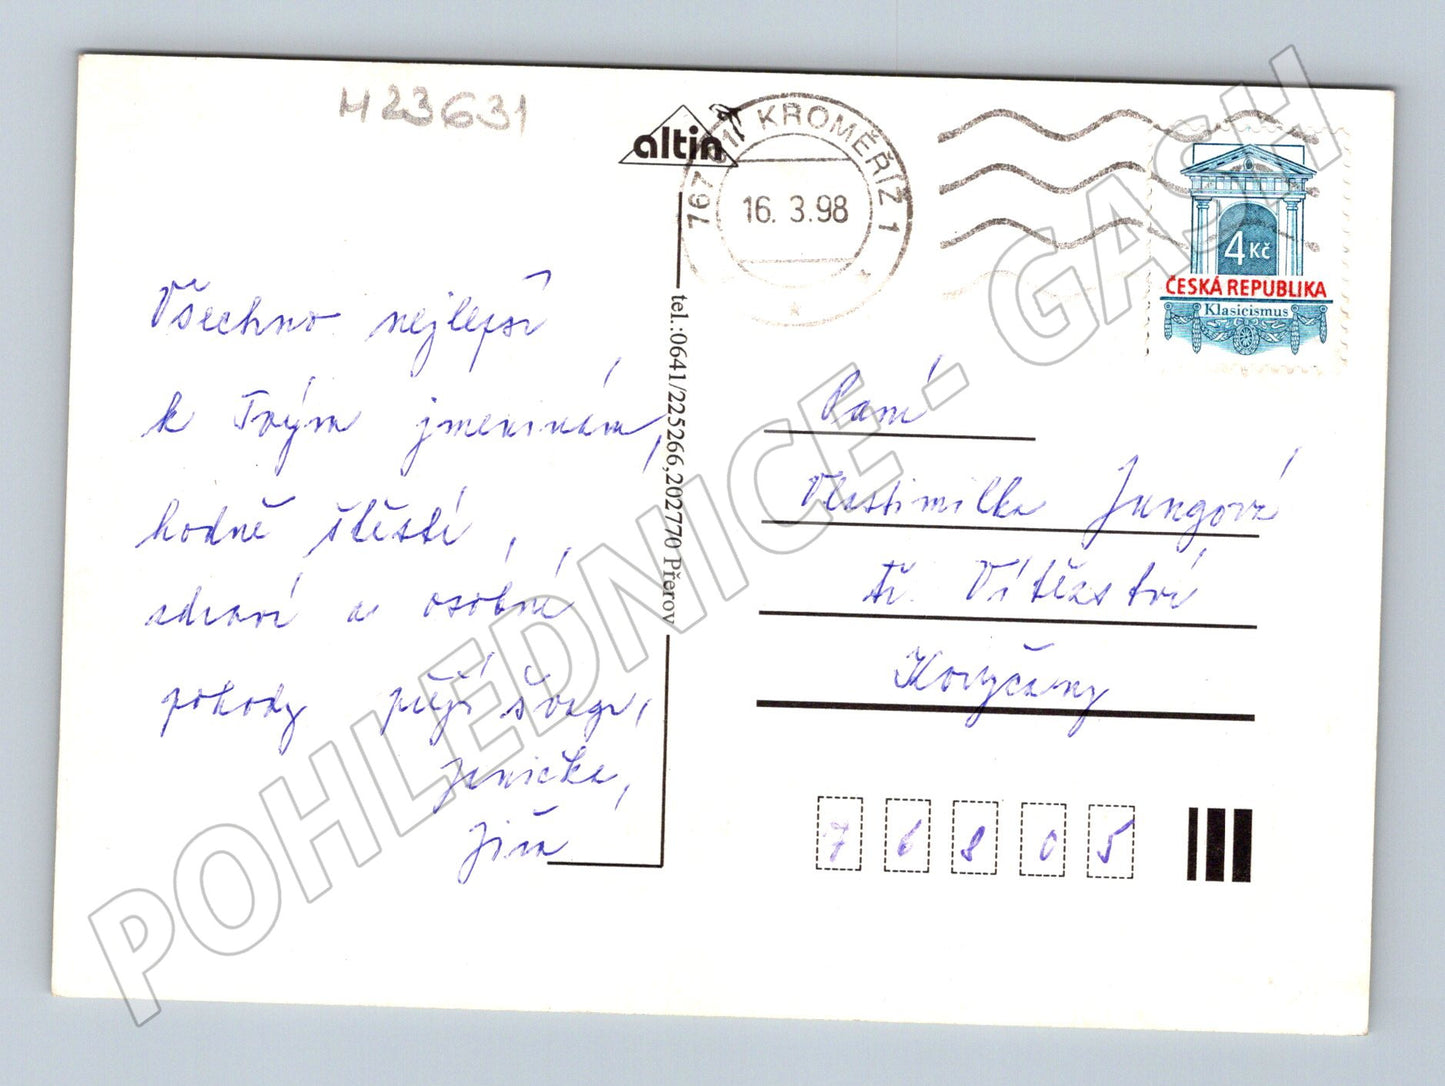 H23631
altin
767 01 KROMĚŘÍŽ 1
16. 3.98
4 Kč
ČESKÁ REPUBLIKA
Klasicismus
Všechno nejlepší
k Tvým jmeninám,
hodně štěstí,
zdraví a osobní
pohody přejí švagr,
Jenička,
Jiří
tel.:0641/225266,202770 Přerov
Paní
Vlastimilka Jungová
tř. Vítězství
Koryčany
76805
POHLEDNICE - GASH